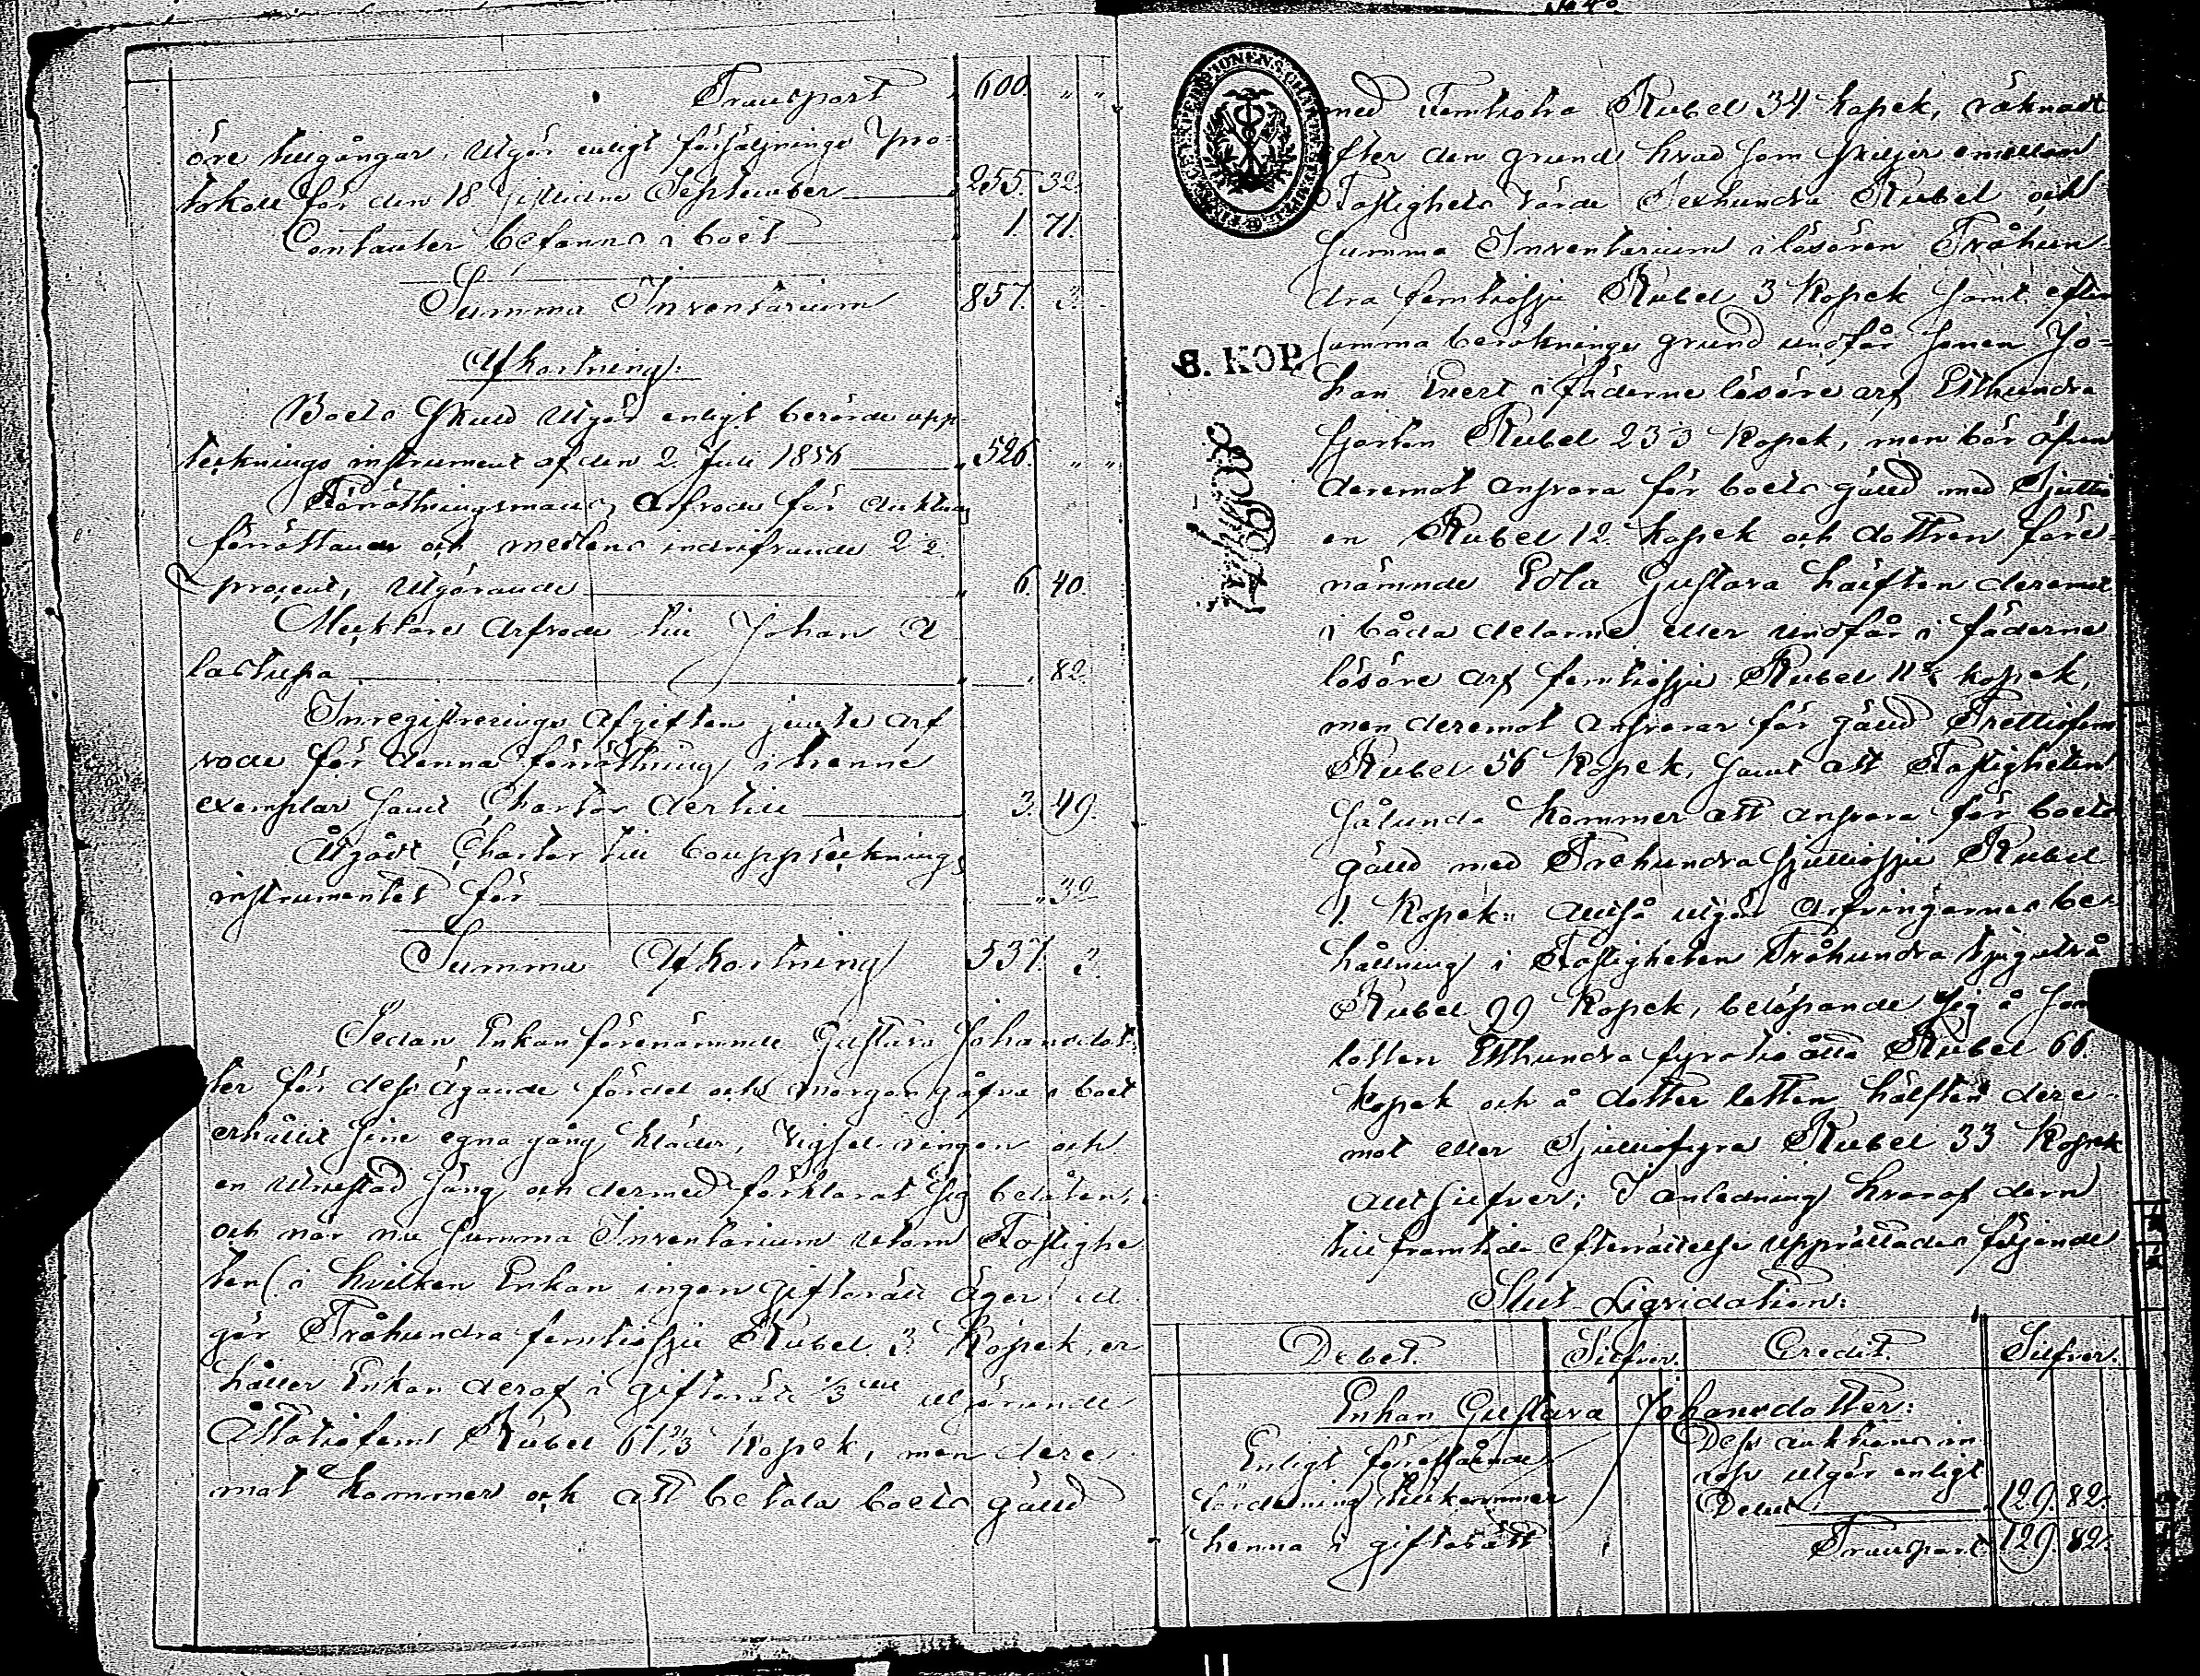 Transport 600. " "
öre tillgångar, utgör enligt försäljnings pro-
tokoll för den 18 sistlidne September 255. 32.
Contanter befanns i boet 1. 71.
Summa Inventarium 857. 3.
Afkortning:
Boets skuld utgör enligt berörde upp-
tecknings instrument af den 2. Juli 1856 526. " "
Förrättningsmans arfvode för auktions
förrättande och medlens indrifvande 2½
procent, utgörande 6. 40.
Mäklare arfvode till Johan A
lastupa 82.
Inregistrerings afgiften jemte arf
vode för denna förrättning i tvenne
exemplar samt Chartor dertill 3. 49.
Åtgått Charter till bouppteknings
instrumentet för " 32
Summa Afkortning 537. 3.
Sedan Enkan förenämnde Gustava Johansdot-
ter för dess ägande fördel och morgongåfva i boet
erhållit sine egna gång kläder, Vigselringen och
en säng och dermed förklarat sig belåten,
och när nu Summa Inventarium utom Fastighe
ten (i hvilken Enkan ingen giftorätt äger) ut
gör Tvåhundra femtiosju Rubel 3 Kopek, er
håller Enkan deraf i giftorätt 1/3 del utgörande
Åttatiofem Rubel 67 2/3 Kopek, men dere
mot kommer ock att betala boets gäld
med Femtiotva Rubel 34 kopek, räknadt
efter den grund hvad som skiljer emellan
Fastighets värde Sexhundra Rubel och
summa Inventarium i lösören Tvåhun-
dra femtiosju Rubel 3 Kopek samt efter
8. KOP.
samma beräknings grund undfår sonen Jo-
han Evert i fäderne lösöre arf Etthundra
fjorton Rubel 23⅓ Kopek, men bör äfven
deremot ansvara för boets gäld med Sjutti
en Rubel 12. kopek och dottren före-
nämnde Edla Gustava hälften deremot
i båda delarne eller undfår i fäderne
lösöre arf femtiosju Rubel 11⅔ kopek,
men deremot ansvarar för gäld Trettiofem
Rubel 56 Kopek, samt att Fastigheten
sålunda kommer att ansvara för boets
gäld med Trehundra sjuttiosju Rubel
1. Kopek; alltså utgör Arfvingarnes be-
hållning i Fastigheten Tvåhundra tjugutvå
Rubel 99 Kopek, belöpande sig å son
lotten Etthundra fyratio åtta Rubel 66.
kopek och å dotter lotten hälften dere-
mot eller Sjuttiofyra Rubel 33 Kopek
allt silfver; I anledning hvaraf den
till framtida efterrättelse upprättades följande
Slut-Liqvidation:
Debet. Silfver. Credit. Silfver.
Enkan Gustava Johansdotter:
Enligt förestående
tillkommer
henne i giftorätt
Dess auktions in
rop utgör enligt
Debet 129. 82.
Transport 129. 82.